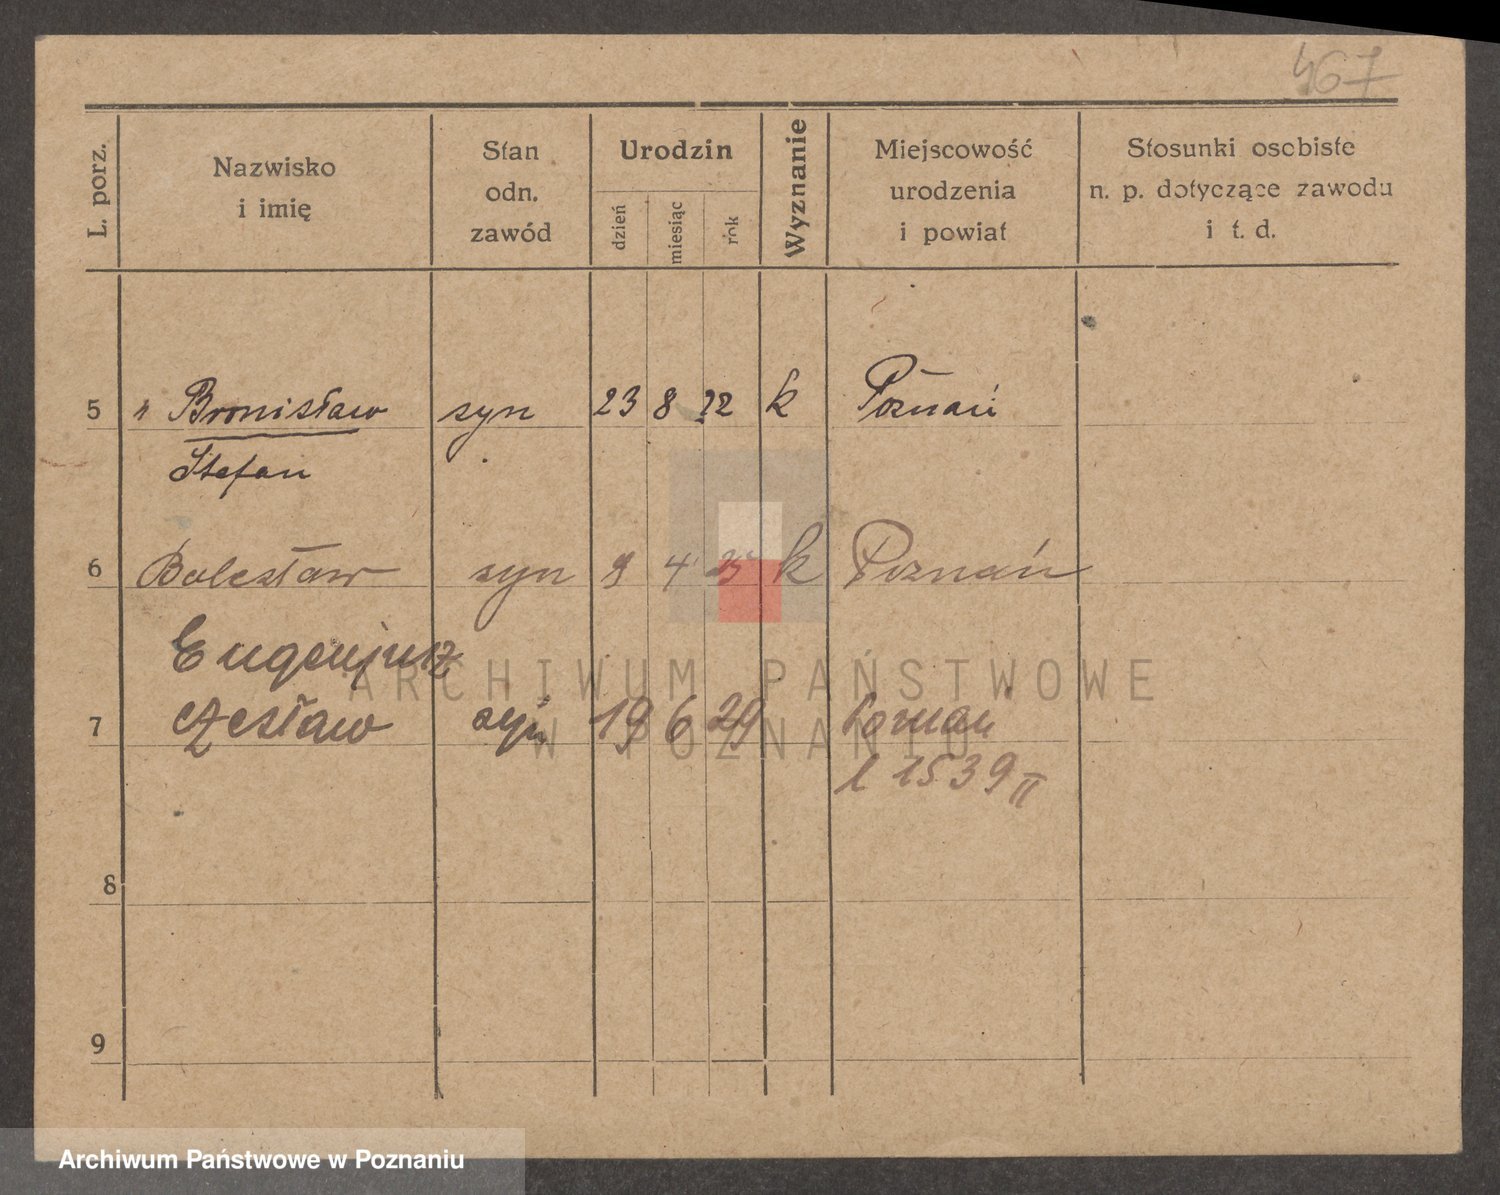 467
L. porz.
Nazwisko
i imię
Stan
odn.
zawód
Urodzin
dzień
miesiąc
rok
Wyznanie
Miejscowość
urodzenia
i powiat
Stosunki osobiste
n. p. dotyczące zawodu
i t. d.
5 " Bronisław syn 23 8 22 k Poznań
Stefan
6 Bolesław syn 9 4 k Poznań
Eugenjusz
7 Czesław syn 19 6 29 Poznań
l 1539 II
8
9
ARCHIWUM PAŃSTWOWE
W POZNANIU
Archiwum Państwowe w Poznaniu